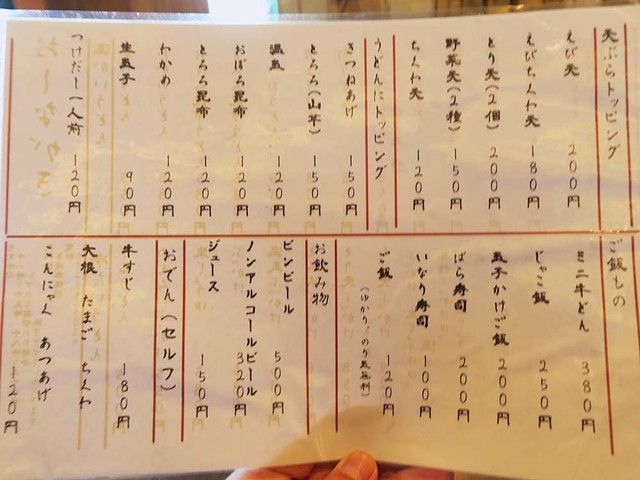 天ぷらトッピング
えび天 200円
えびちくわ天 180円
とり天(2個) 200円
野菜天(2種) 150円
ちくわ天 120円
うどんにトッピング
きつねあげ 150円
とろろ(山芋) 150円
温玉 120円
おぼろ昆布 120円
とろろ昆布 120円
わかめ 120円
生玉子 90円
つけだし一人前 120円
ご飯もの
ミニ牛どん 380円
じゃこ飯 250円
玉子かけご飯 200円
ばら寿司 200円
いなり寿司 100円
ご飯 120円
(ゆかり、のり玉無料)
お飲み物
ビンビール 500円
ノンアルコールビール 320円
ジュース 150円
おでん(セルフ)
牛すじ 180円
大根 たまご ちくわ
こんにゃく あつあげ 120円